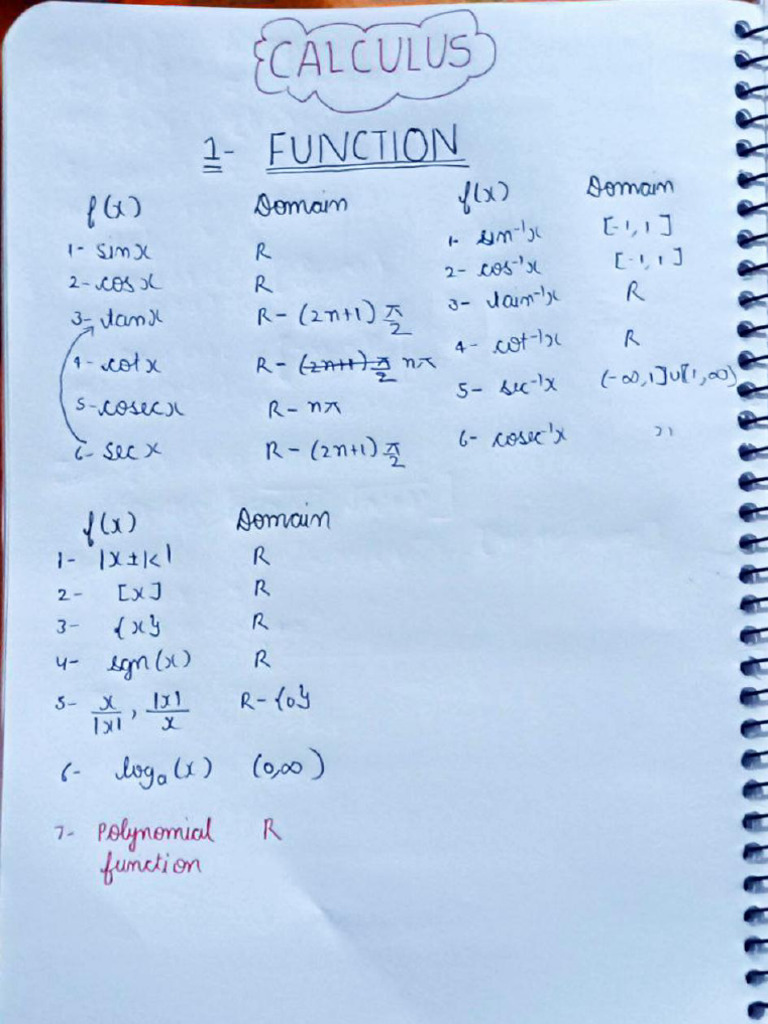 CALCULUS
1- FUNCTION
f(x) Domain
1- sinx R
2- cosx R
3- tanx R - (2n+1) π/2
4- cotx R - (2n+1) π/2 nπ
5- cosecx R - nπ
6- secx R - (2n+1) π/2
f(x) Domain
1- sin⁻¹x [-1,1]
2- cos⁻¹x [-1,1]
3- tain⁻¹x R
4- cot⁻¹x R
5- sec⁻¹x (-∞,1]∪[1,∞)
6- cosec⁻¹x "
f(x) Domain
1- |x±k| R
2- [x] R
3- {x} R
4- sgn(x) R
5- x/|x| , |x|/x R-{0}
6- logₐ(x) (0,∞)
7- Polynomial R
function